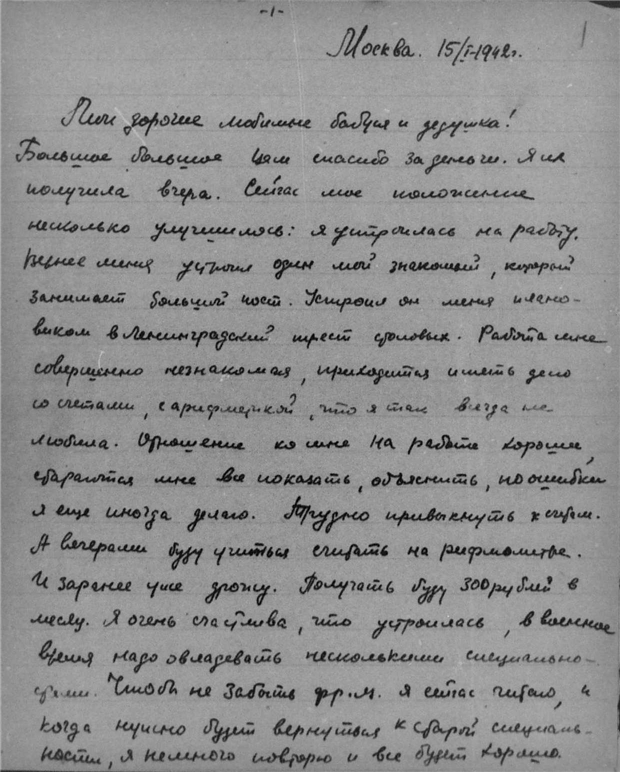 -1-
1
Москва. 15/I-1942г.
Мои дорогие любимые бабуся и дедушка!
Большое большое Вам спасибо за деньги. Я их
получила вчера. Сейчас мое положение
несколько улучшилось: я устроилась на работу.
Вернее меня устроил один мой знакомый, который
занимает большой пост. Устроил он меня плано-
виком в Ленинградский трест столовых. Работа мне
совершенно незнакомая, приходится иметь дело
со счетами, с арифметикой, что я так всегда не
любила. Отношение ко мне на работе хорошее,
стараются мне все показать, объяснить, но ошибки
я еще иногда делаю. Трудно привыкнуть к цифрам.
А вечерами буду учиться считать на арифмометре.
И заранее уже дрожу. Получать буду 300 рублей в
месяц. Я очень счастлива, что устроилась, в военное
время надо овладевать несколькими специально-
стями. Чтобы не забыть фр. я сейчас читаю, и
когда нужно будет вернуться к старой специаль-
ности, я немного повторю и все будет хорошо.